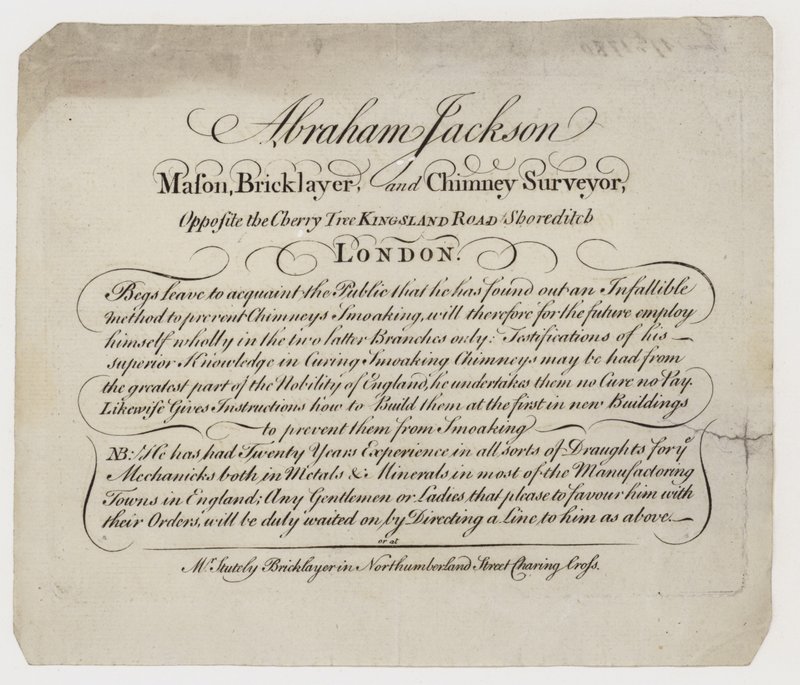 Abraham Jackson
Maſon, Bricklayer, and Chimney Surveyor,
Oppoſite the Cherry Tree KINGSLAND ROAD Shoreditch
LONDON.
Begs leave to acquaint the Public that he has found out an Infallible
method to prevent Chimneys Smoaking, will therefore for the future employ
himself wholly in the two latter Branches only: Testifications of his
superior Knowledge in Curing Smoaking Chimneys may be had from
the greatest part of the Nobility of England, he undertakes them no Cure no Pay.
Likewiſe Gives Instructions how to Build them at the first in new Buildings
to prevent them from Smoaking
NB: He has had Twenty Years Experience in all sorts of Draughts for yᵉ
Mechanicks both in Metals & Minerals in most of the Manufactoring
Towns in England; Any Gentlemen or Ladies that please to favour him with
their Orders, will be duly waited on by Directing a Line to him as above.
or at
Mʳ. Stutely Bricklayer in Northumberland Street Charing Croſs.